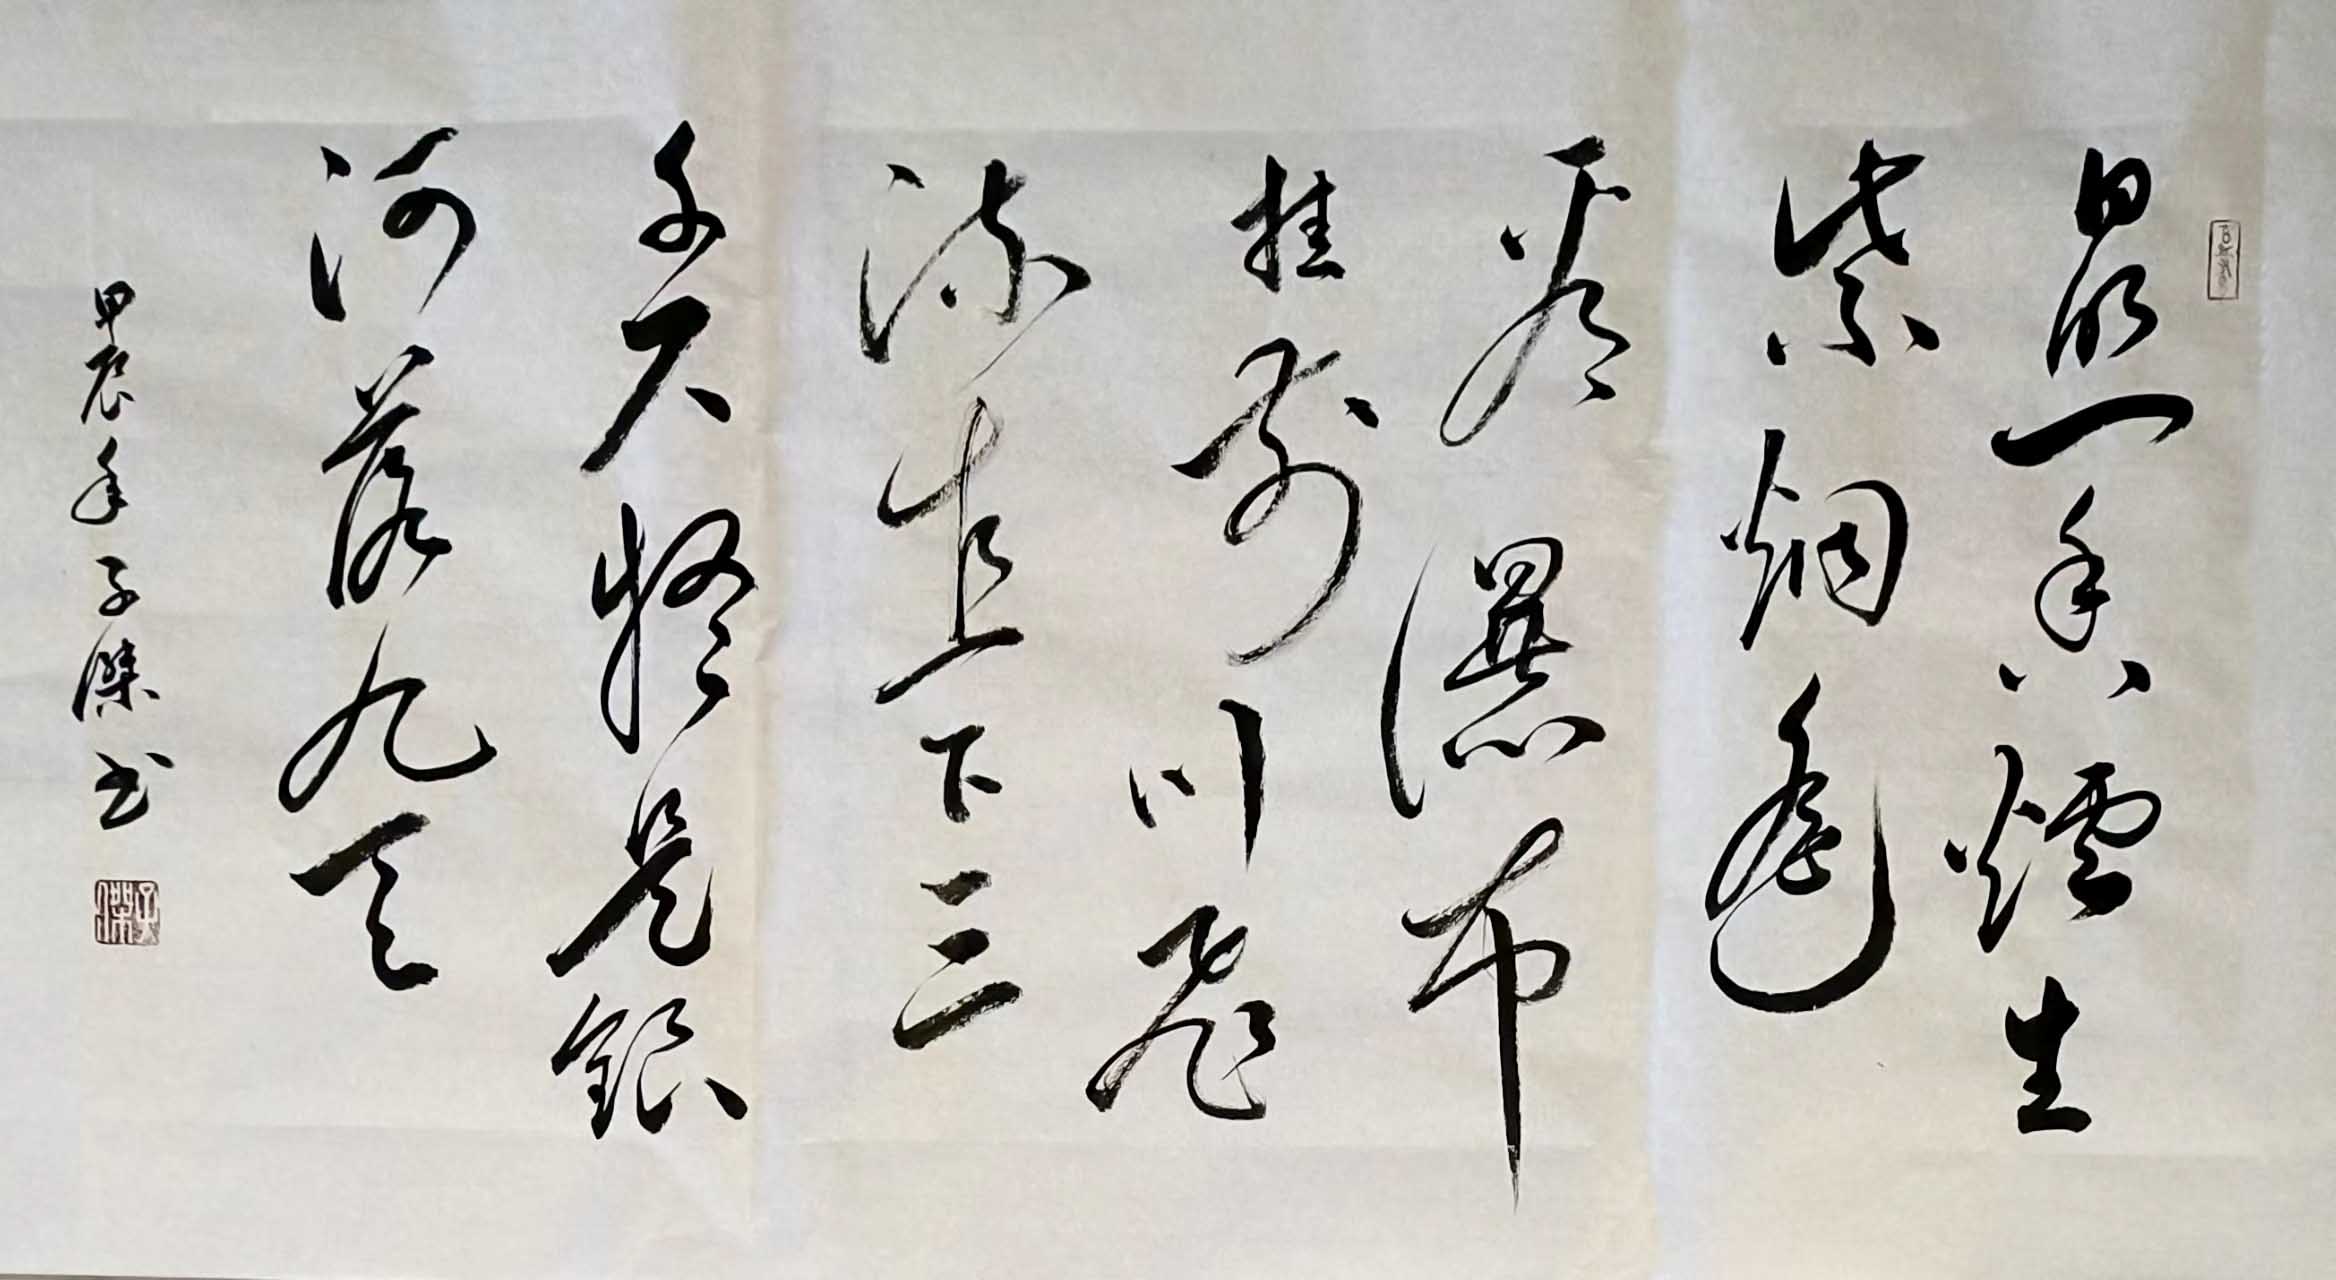 日照香爐生
紫烟遥
看瀑布
挂前川飛
流直下三
千尺疑是銀
河落九天
甲辰年子傑书
子傑